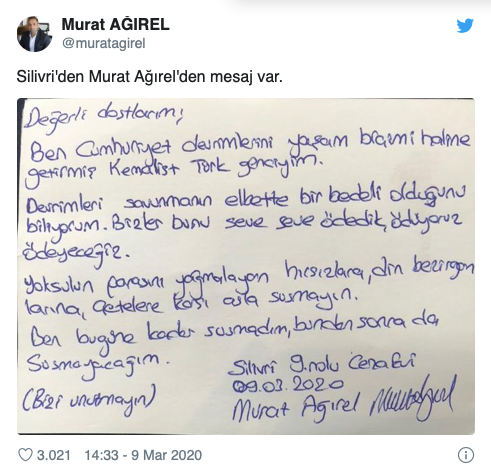 Murat AĞIREL
@muratagirel
Silivri'den Murat Ağırel'den mesaj var.
Değerli dostlarım;
Ben Cumhuriyet devrimlerini yaşam biçimi haline
getirmiş Kemalist Türk genciyim.
Devrimleri savunmanın elbette bir bedeli olduğunu
biliyorum. Bizler bunu seve seve ödedik, ödüyoruz
ödeyeceğiz.
Yoksulun parasını yağmalayan hırsızlara, din bezirgan
larına, çetelere karşı asla susmayın.
Ben bugüne kadar susmadım, bundan sonra da
Susmayacağım.
Silivri 9.nolu Cezaevi
09.03.2020
(Bizi unutmayın)
Murat Ağırel
3.021 14:33 - 9 Mar 2020